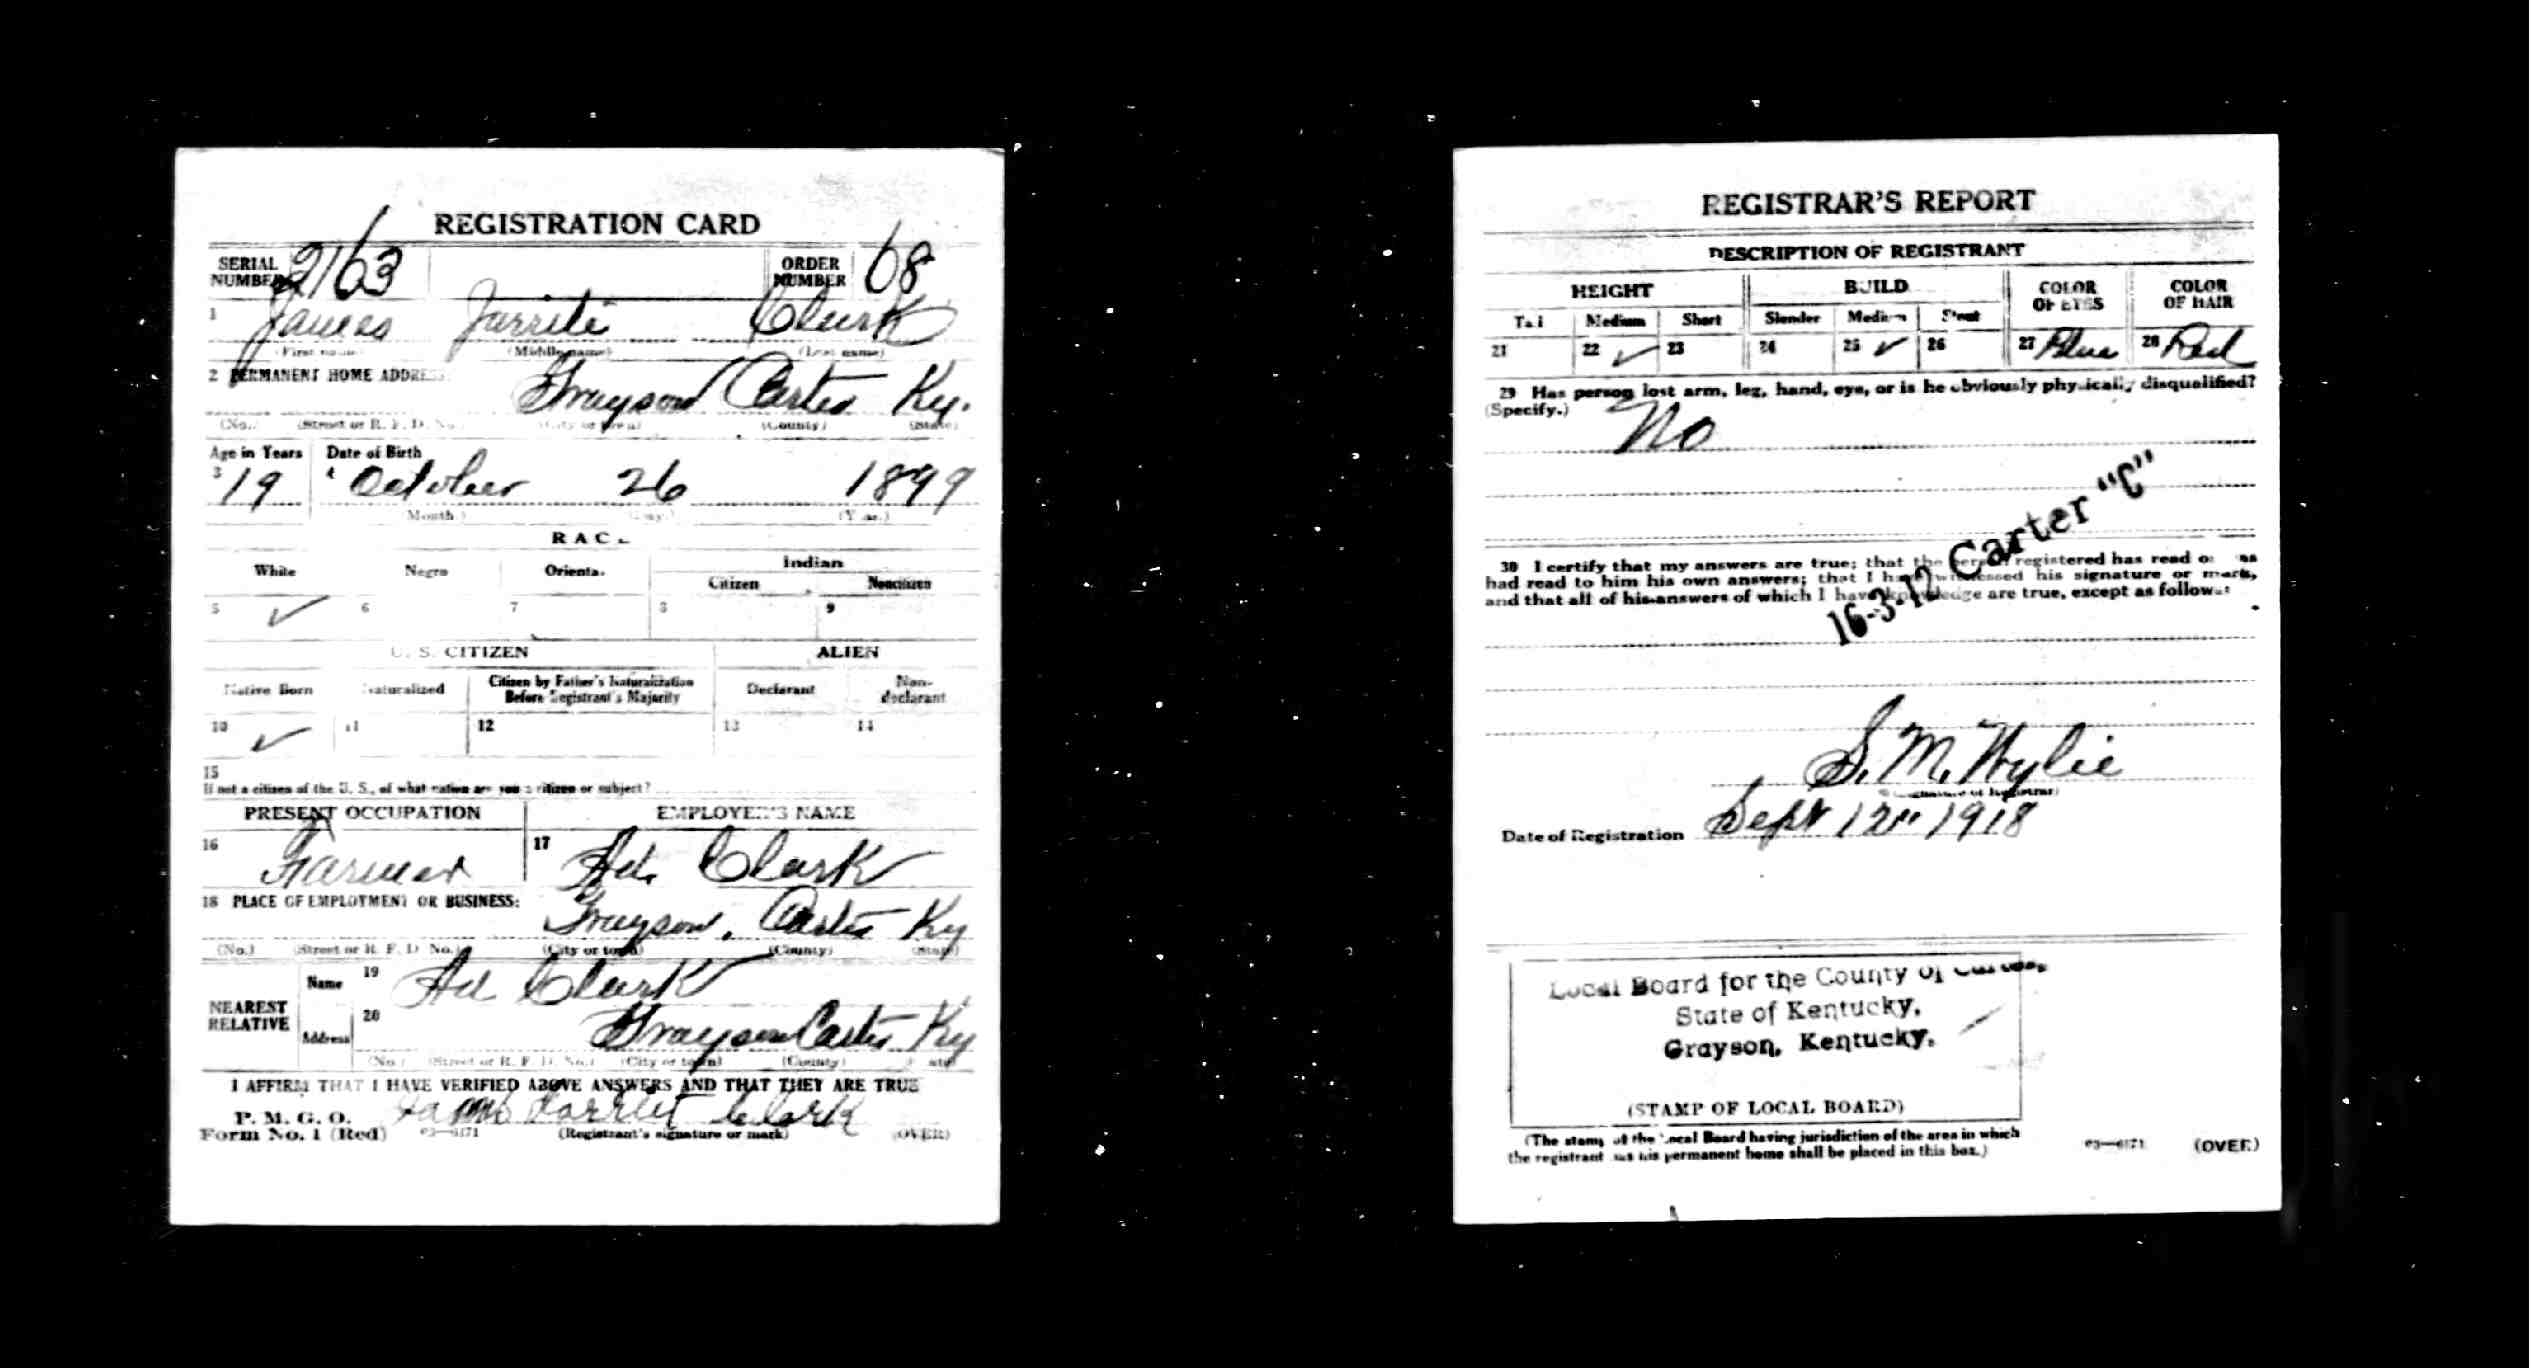 REGISTRATION CARD
SERIAL NUMBER 2163 ORDER NUMBER 68
1 James Clark
(First name) (Middle name) (Last name)
2 PERMANENT HOME ADDRESS:
Grayson Carter Ky.
(No.) (Street or R. F. D. No.) (City or town) (County) (State)
Age in Years Date of Birth
3 19 4 October 26 1899
(Month.) (Day.) (Year.)
RACE
White Negro Oriental Indian
Citizen Noncitizen
5 ✓ 6 7 8 9
U. S. CITIZEN ALIEN
Native Born Naturalized Citizen by Father's Naturalization Before Registrant's Majority Declarant Non-declarant
10 ✓ 11 12 13 14
15
If not a citizen of the U. S., of what nation are you a citizen or subject?
PRESENT OCCUPATION EMPLOYER'S NAME
16 Farmer 17 Ad. Clark
18 PLACE OF EMPLOYMENT OR BUSINESS:
Grayson, Carter Ky
(No.) (Street or R. F. D. No.) (City or town) (County) (State)
NEAREST RELATIVE
Name 19 Ad Clark
Address 20 Grayson Carter Ky
(No.) (Street or R. F. D. No.) (City or town) (County) (State)
I AFFIRM THAT I HAVE VERIFIED ABOVE ANSWERS AND THAT THEY ARE TRUE
P. M. G. O.
Form No. 1 (Red) 03—6171 Clark (Registrant's signature or mark) (OVER)
REGISTRAR'S REPORT
DESCRIPTION OF REGISTRANT
HEIGHT BUILD COLOR OF EYES COLOR OF HAIR
Tall Medium Short Slender Medium Stout
21 22 ✓ 23 24 25 ✓ 26 27 Blue 28 Red
29 Has person lost arm, leg, hand, eye, or is he obviously physically disqualified?
(Specify.) No
16-3-12 Carter "C"
30 I certify that my answers are true; that the person registered has read or has
had read to him his own answers; that I have witnessed his signature or mark,
and that all of his answers of which I have knowledge are true, except as follows:
S. M. Wylie
(Signature of Registrar)
Date of Registration Sept 12" 1918
Local Board for the County of Carter,
State of Kentucky,
Grayson, Kentucky.
(STAMP OF LOCAL BOARD)
(The stamp of the Local Board having jurisdiction of the area in which
the registrant has his permanent home shall be placed in this box.)
03—6171 (OVER)